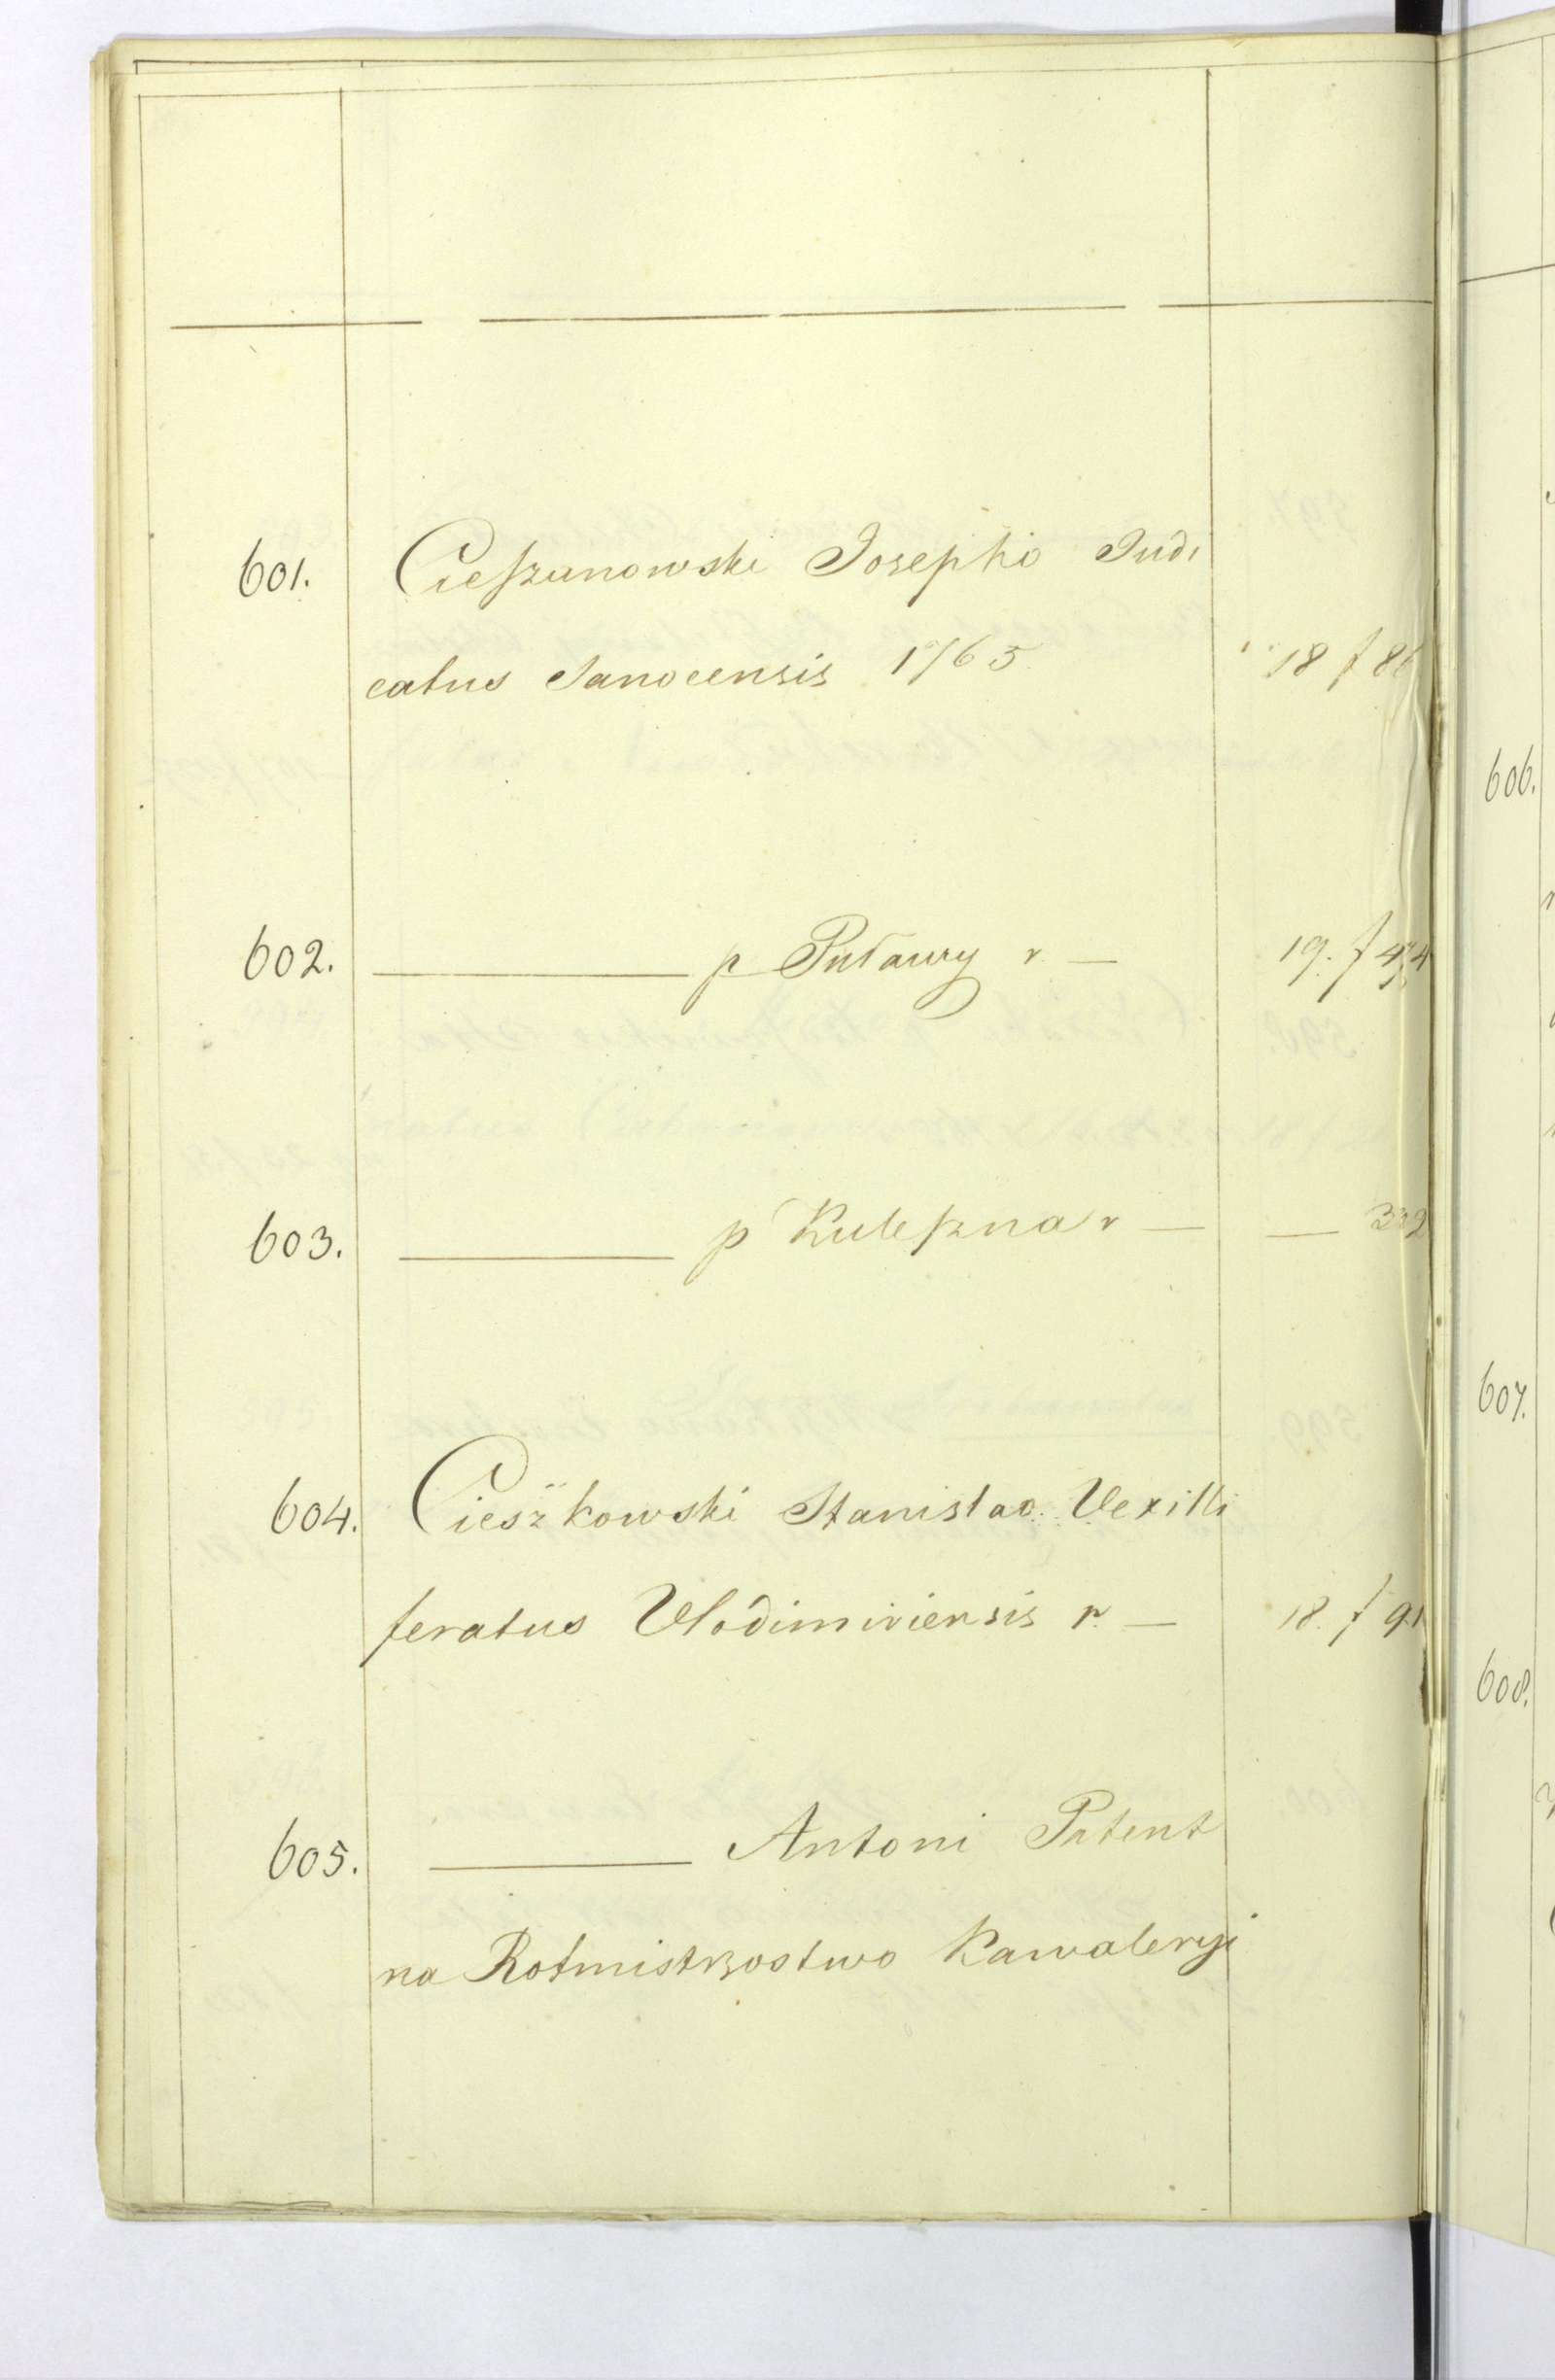 601. Cieszanowski Josepho Judi
catus Sanocensis 1765. 18 f 86
602. ——— p Puławy r — 19. f 474
603. ——— p Kuleszna r — — 332
604. Cieszkowski Stanislao. Vexilli
feratus Vlodimiriensis r. — 18. f 91
605. ——— Antoni Patent
na Rotmistrzostwo Kawaleryi
606.
607.
608.